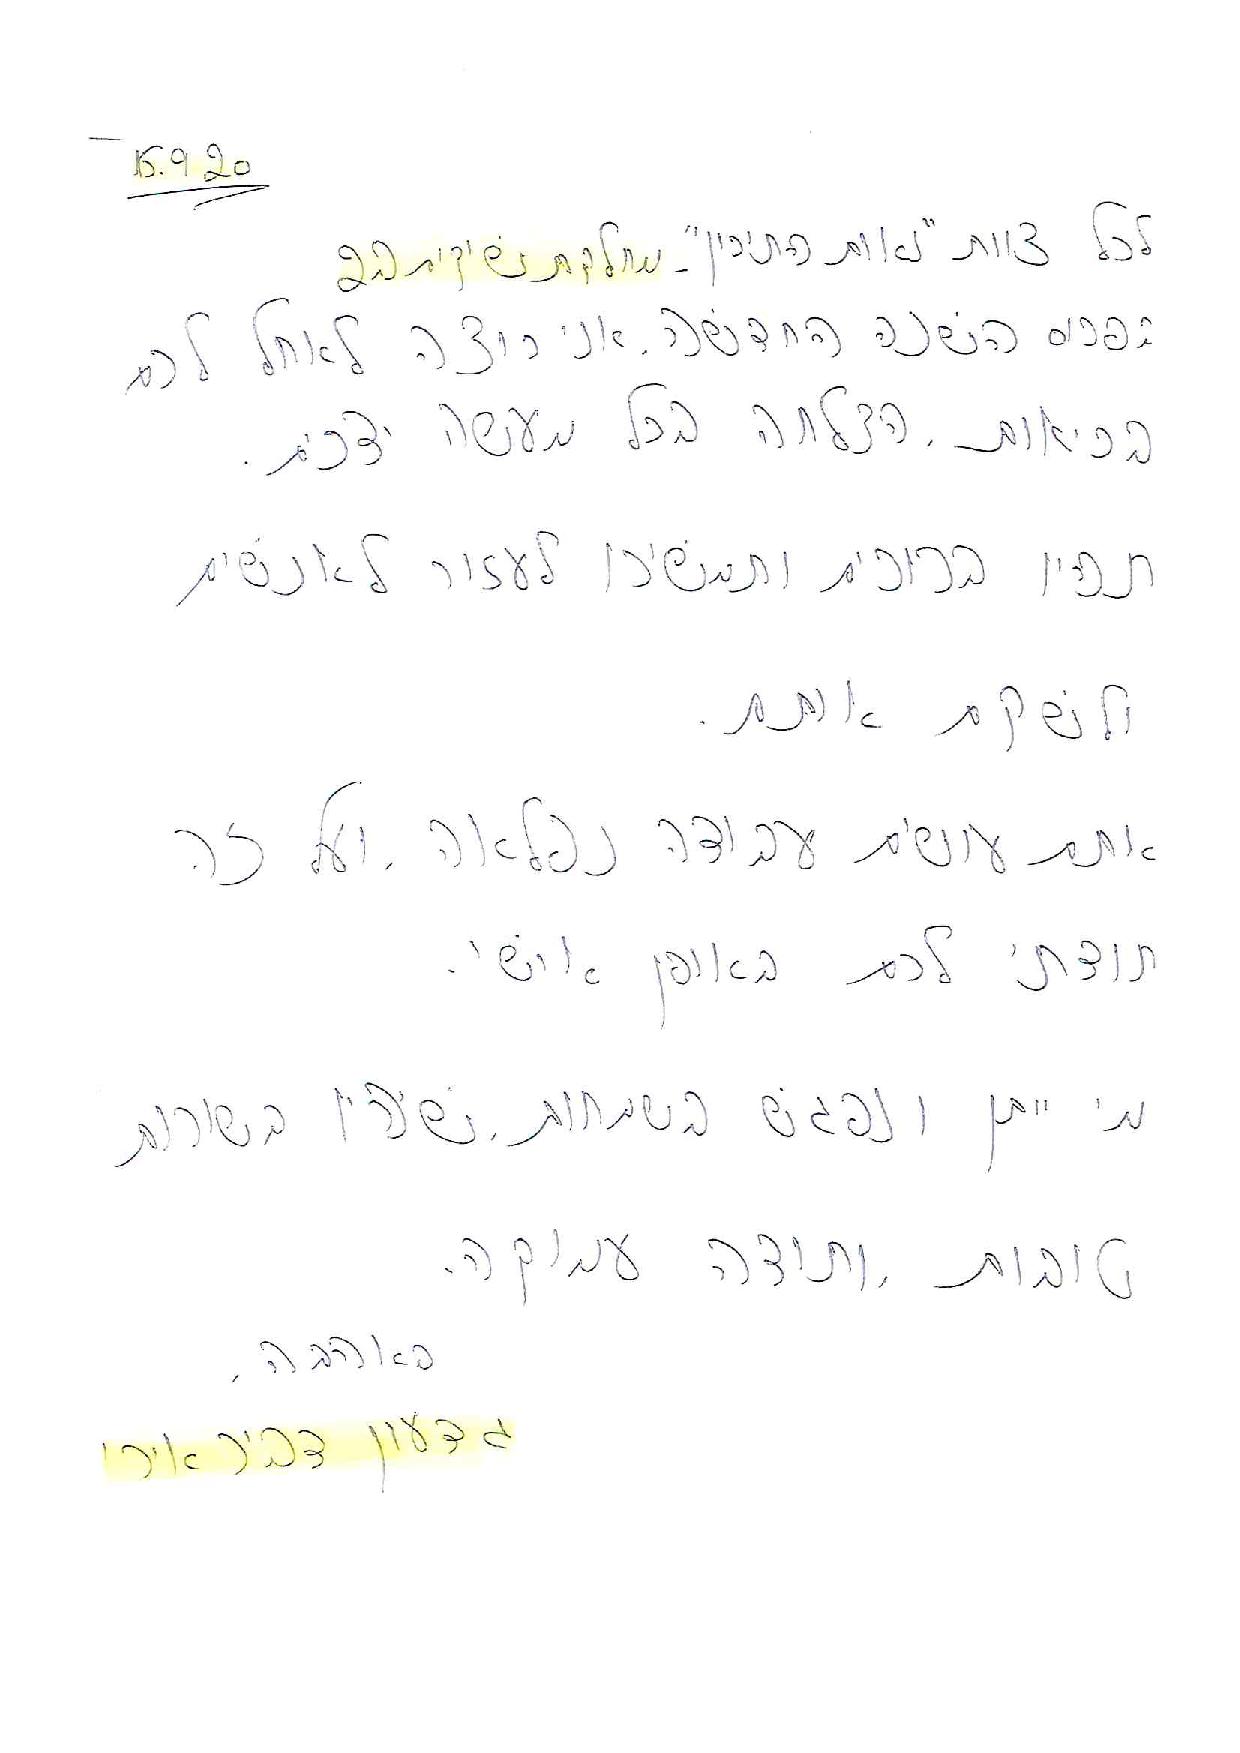 15.9.20
לכל צוות "נאות התיכון" - מחלקת שיקום ב2
בפרוס השנה החדשה, אני רוצה לאחל לכם
בריאות, הצלחה בכל מעשה ידכם.
תהיו ברוכים ותמשיכו לעזור לאנשים
ולשקם אותם.
אתם עושים עבודה נפלאה, ועל זה
תודתי לכם באופן אישי.
מי ייתן ונפגש בשמחות, שיהיו בשורות
טובות, ותודה עמוקה.
באהבה,
גדעון דביר אירי